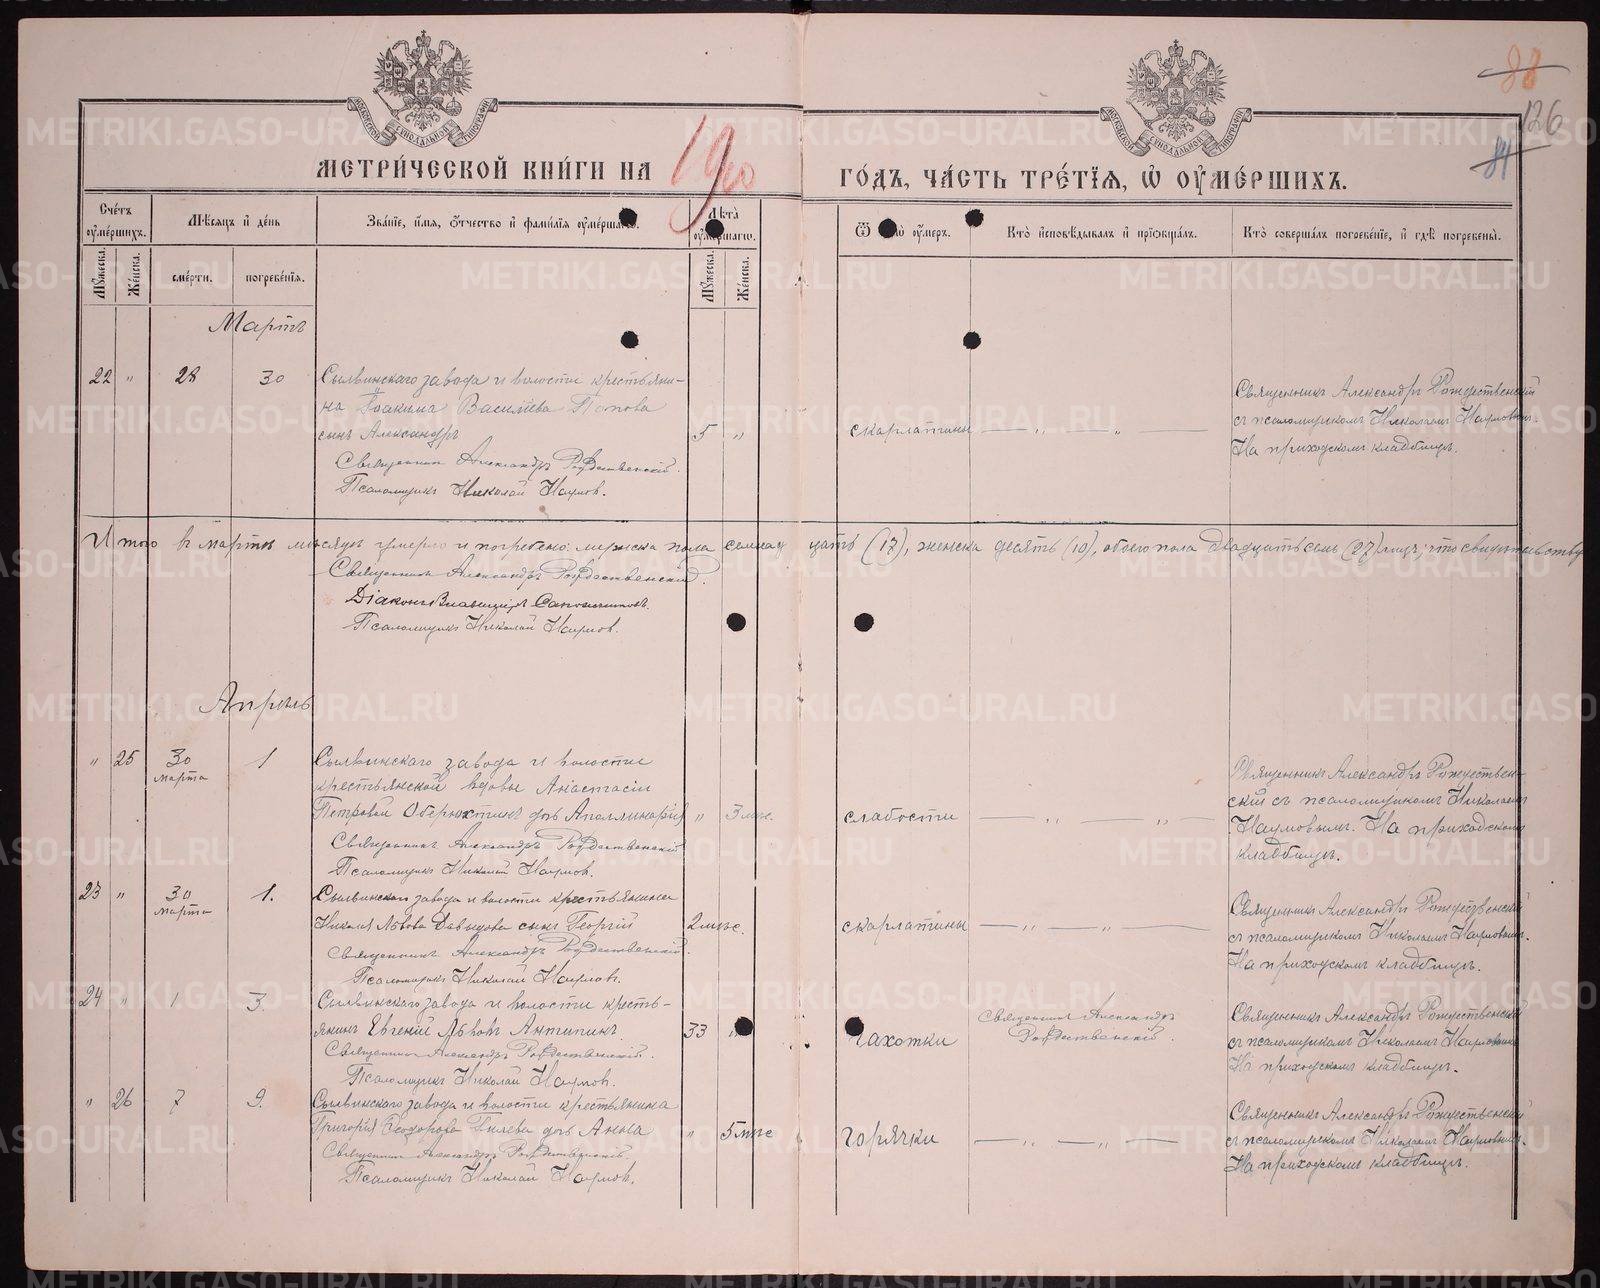 МЕТРИ́ЧЕСКОЙ КНИ́ГИ НА 19
ГО́ДЪ, ЧА́СТЬ ТРЕ́ТІѦ, Ѡ ОУМЕ́РШИХЪ.
126
Сче́тъ оуме́ршихъ.
Мѣ́сяцъ и де́нь
Зва́ніе, и́мя, о́тчество и фами́лія оуме́ршаго.
Лѣта̀ оуме́ршагѡ.
оу́меръ.
Кто̀ и҆сповѣ́дывалъ и҆ прїѡбща́лъ.
Кто̀ соверша́лъ погребе́нїе, и҆ гдѣ̀ погребены̀.
Мꙋ́жеска.
Же́нска.
сме́рти.
погребе́нїѧ.
Мꙋ́жеска.
Же́нска.
Мартъ
22 " 28 30
Сылвинскаго завода и волости крестьяни-
на Іоакима Васильева Попова
сынъ Александръ 5 " скарлатины
Священникъ Александръ Рождественскій.
Псаломщикъ Николай Наумов.
Священникъ Александръ Рождественскій
съ псаломщикомъ Николаемъ Наумовым.
На приходскомъ кладбищѣ.
Итого въ мартѣ мѣсяцѣ умерло и погребено: мужска пола семнадцать (17), женска десять (10), обоего пола двадцать семь (27) лицъ; что свидѣтельству
Священникъ Александръ Рождественскій.
Діаконъ Сапожниковъ.
Псаломщикъ Николай Наумов.
Апрѣль
" 25 30 марта 1
Сылвинскаго завода и волости
крестьянской вдовы Анастасіи
Петровой дочь Аполлинарія " 3 мѣс. слабости
Священникъ Александръ Рождественскій
Псаломщикъ Николай Наумов.
Священникъ Александръ Рождествен-
скій съ псаломщикомъ Николаемъ
Наумовымъ. На приходскомъ
кладбищѣ.
23 " 30 марта 1.
Сылвинскаго завода и волости крестьянина
Николая Львова Давыдова сынъ Георгій 2 мѣс. скарлатины
Священникъ Александръ Рождественскій.
Псаломщикъ Николай Наумов.
Священникъ Александръ Рождественскій
съ псаломщикомъ Николаемъ Наумовым.
На приходскомъ кладбищѣ.
24 " 1 3.
Сылвинскаго завода и волости кресть-
янинъ Евгеній Львовъ Антипинъ 33 " чахотки
Священникъ Александръ Рождественскій.
Псаломщикъ Николай Наумов.
Священникъ Александръ
Рождественскій.
Священникъ Александръ Рождественскій
съ псаломщикомъ Николаемъ Наумовым
На приходскомъ кладбищѣ.
" 26 7 9.
Сылвинскаго завода и волости крестьянина
Григорія Ѳеодорова Гилева дочь Анна " 5 мѣс горячки
Священникъ Александръ Рождественскій.
Псаломщикъ Николай Наумов.
Священникъ Александръ Рождественскій
съ псаломщикомъ Николаемъ Наумовым.
На приходскомъ кладбищѣ.
METRIKI.GASO-URAL.RU